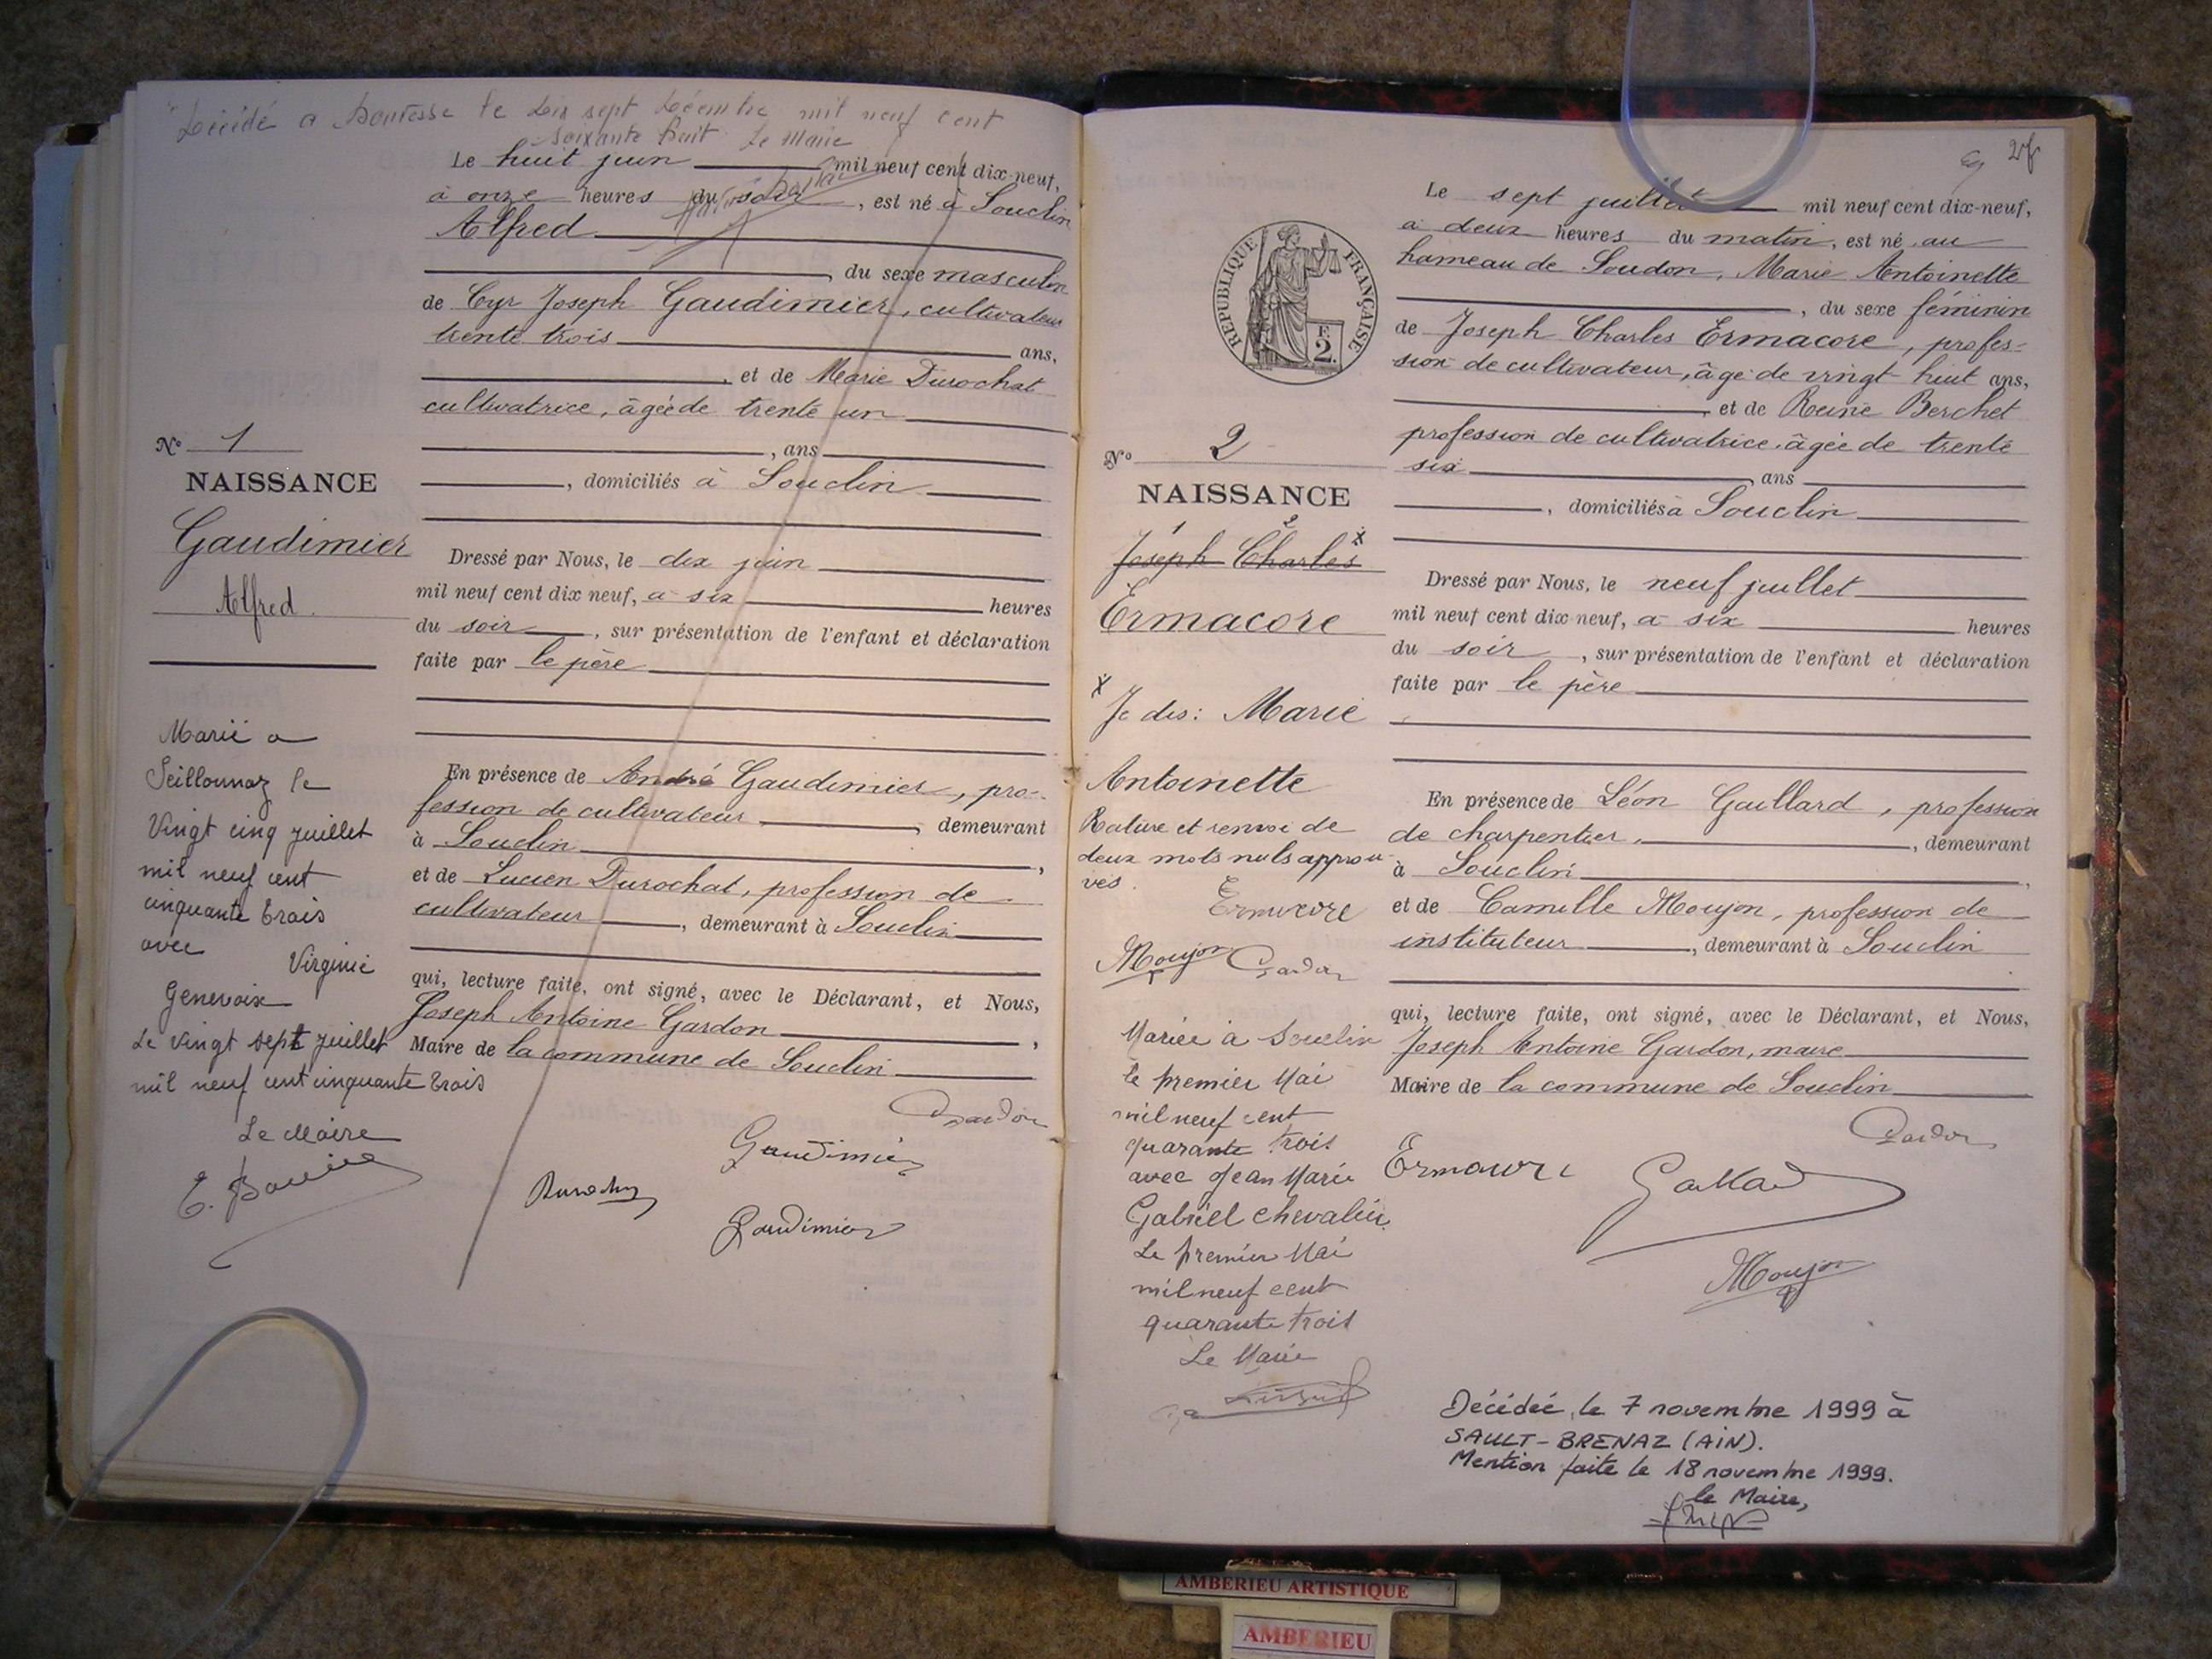 Décédé a le dix sept décembre mil neuf cent
soixante huit Le Maire
Le huit juin mil neuf cent dix-neuf,
à onze heures du soir, est né à Souclin
Alfred
, du sexe masculin
de Cyr Joseph Gaudimier, cultivateur
trente trois ans,
, et de Marie Durochat
cultivatrice, âgée de trente un
, ans
, domiciliés à Souclin
Dressé par Nous, le dix juin
mil neuf cent dix neuf, à six heures
du soir, sur présentation de l'enfant et déclaration
faite par le père
En présence de André Gaudimier, pro-
fession de cultivateur, demeurant
à Souclin,
et de Lucien Durochat, profession de
cultivateur, demeurant à Souclin
qui, lecture faite, ont signé, avec le Déclarant, et Nous,
Joseph Antoine Gardon,
Maire de la commune de Souclin
Gardon
Gaudimier
Durochat
Gaudimier
N° 1
NAISSANCE
Gaudimier
Alfred.
Marié a
Seillonnaz le
Vingt cinq juillet
mil neuf cent
cinquante trois
avec
Virginie
Genevoix
Le vingt sept juillet
mil neuf cent cinquante trois
Le Maire
28
Le sept juillet mil neuf cent dix-neuf,
à deux heures du matin, est né au
hameau de Soudon, Marie Antoinette
, du sexe féminin
de Joseph Charles Ermacore, profes-
sion de cultivateur, âgé de vingt huit ans,
, et de Reine Berchet
profession de cultivatrice, âgée de trente
six, ans
, domiciliés à Souclin
Dressé par Nous, le neuf juillet
mil neuf cent dix-neuf, à six heures
du soir, sur présentation de l'enfant et déclaration
faite par le père
En présence de Léon Gaillard, profession
de charpentier, demeurant
à Souclin,
et de Camille Moujon, profession de
instituteur, demeurant à Souclin
qui, lecture faite, ont signé, avec le Déclarant, et Nous,
Joseph Antoine Gardon, maire
Maire de la commune de Souclin
Gardon
Ermacore
Gaillard
Moujon
RÉPUBLIQUE FRANÇAISE
E.
2.
N° 2
NAISSANCE
1 2 x
Joseph Charles
Ermacore
x
Je dis: Marie
Antoinette
Rature et renvoi de
deux mots nuls approu-
vés.
Ermacore
Moujon Gardon
Mariée à Souclin
le premier Mai
mil neuf cent
quarante trois
avec Jean Marie
Gabriel Chevalier
Le premier Mai
mil neuf cent
quarante trois
Le Maire
Décédée le 7 novembre 1999 à
SAULT-BRENAZ (AIN).
Mention faite le 18 novembre 1999.
le Maire,
AMBERIEU ARTISTIQUE
AMBERIEU